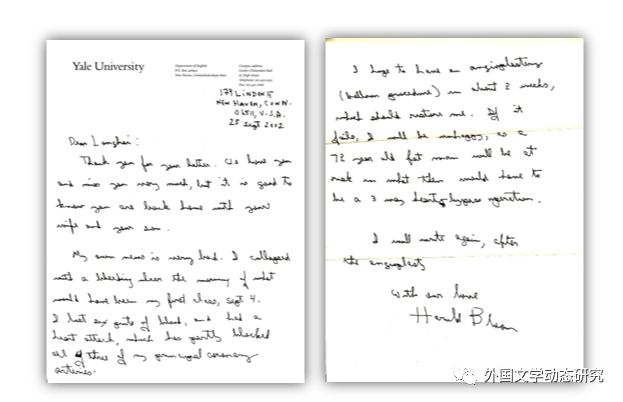 Yale University
Department of English
Campus address:
Linsly-Chittenden Hall
63 High Street
179 LINDEN ST
NEW HAVEN, CONN.
06511, U.S.A.
25 Sept 2002
Dear Longhai:
Thank you for your letter. We love you
and miss you very much, but it is good to
know you are back home with your
wife and your son.
My own news is very bad. I collapsed
with a bleeding ulcer the morning of what
would have been my first class, Sept 4.
I lost six pints of blood, and had a
heart attack, which has partly blocked
all of three of my principal coronary
arteries.
I hope to have an angioplasty
(balloon procedure) in about 2 weeks,
which should restore me. If it
fails, I will be unhappy, as a
72 year old fat man will be at
risk in what then would have to
be a 3 way heart-bypass operation.
I will write again, after
the angioplasty
With our love
Harold Bloom
外国文学动态研究